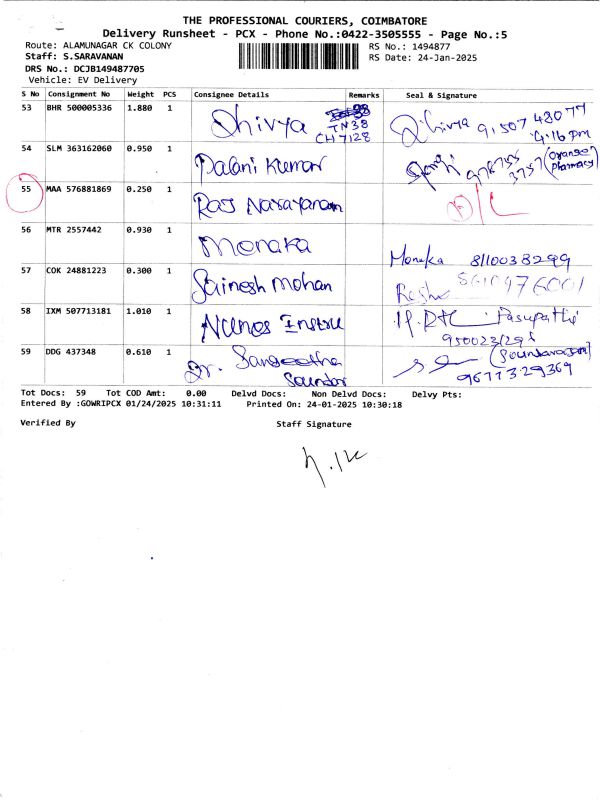 THE PROFESSIONAL COURIERS, COIMBATORE
Delivery Runsheet - PCX - Phone No.:0422-3505555 - Page No.:5
Route: ALAMUNAGAR CK COLONY RS No.: 1494877
Staff: S.SARAVANAN RS Date: 24-Jan-2025
DRS No.: DCJB149487705
Vehicle: EV Delivery
S No Consignment No Weight PCS Consignee Details Remarks Seal & Signature
53 BHR 500005336 1.880 1 Dhivya TN38 CH7128 Dhivya 9150748077 4:16 pm
54 SLM 363162060 0.950 1 Palani Kumar (Orange Pharmacy)
55 MAA 576881869 0.250 1 Raj Narayanan D/L
56 MTR 2557442 0.930 1 Monaka Monaka 8110038299
57 COK 24881223 0.300 1 Sainesh Mohan
58 IXM 507713181 1.010 1 Pasupathi
59 DDG 437348 0.610 1 Dr. Sangeetha Soundar 9677329369
Tot Docs: 59 Tot COD Amt: 0.00 Delvd Docs: Non Delvd Docs: Delvy Pts:
Entered By :GOWRIPCX 01/24/2025 10:31:11 Printed On: 24-01-2025 10:30:18
Verified By Staff Signature